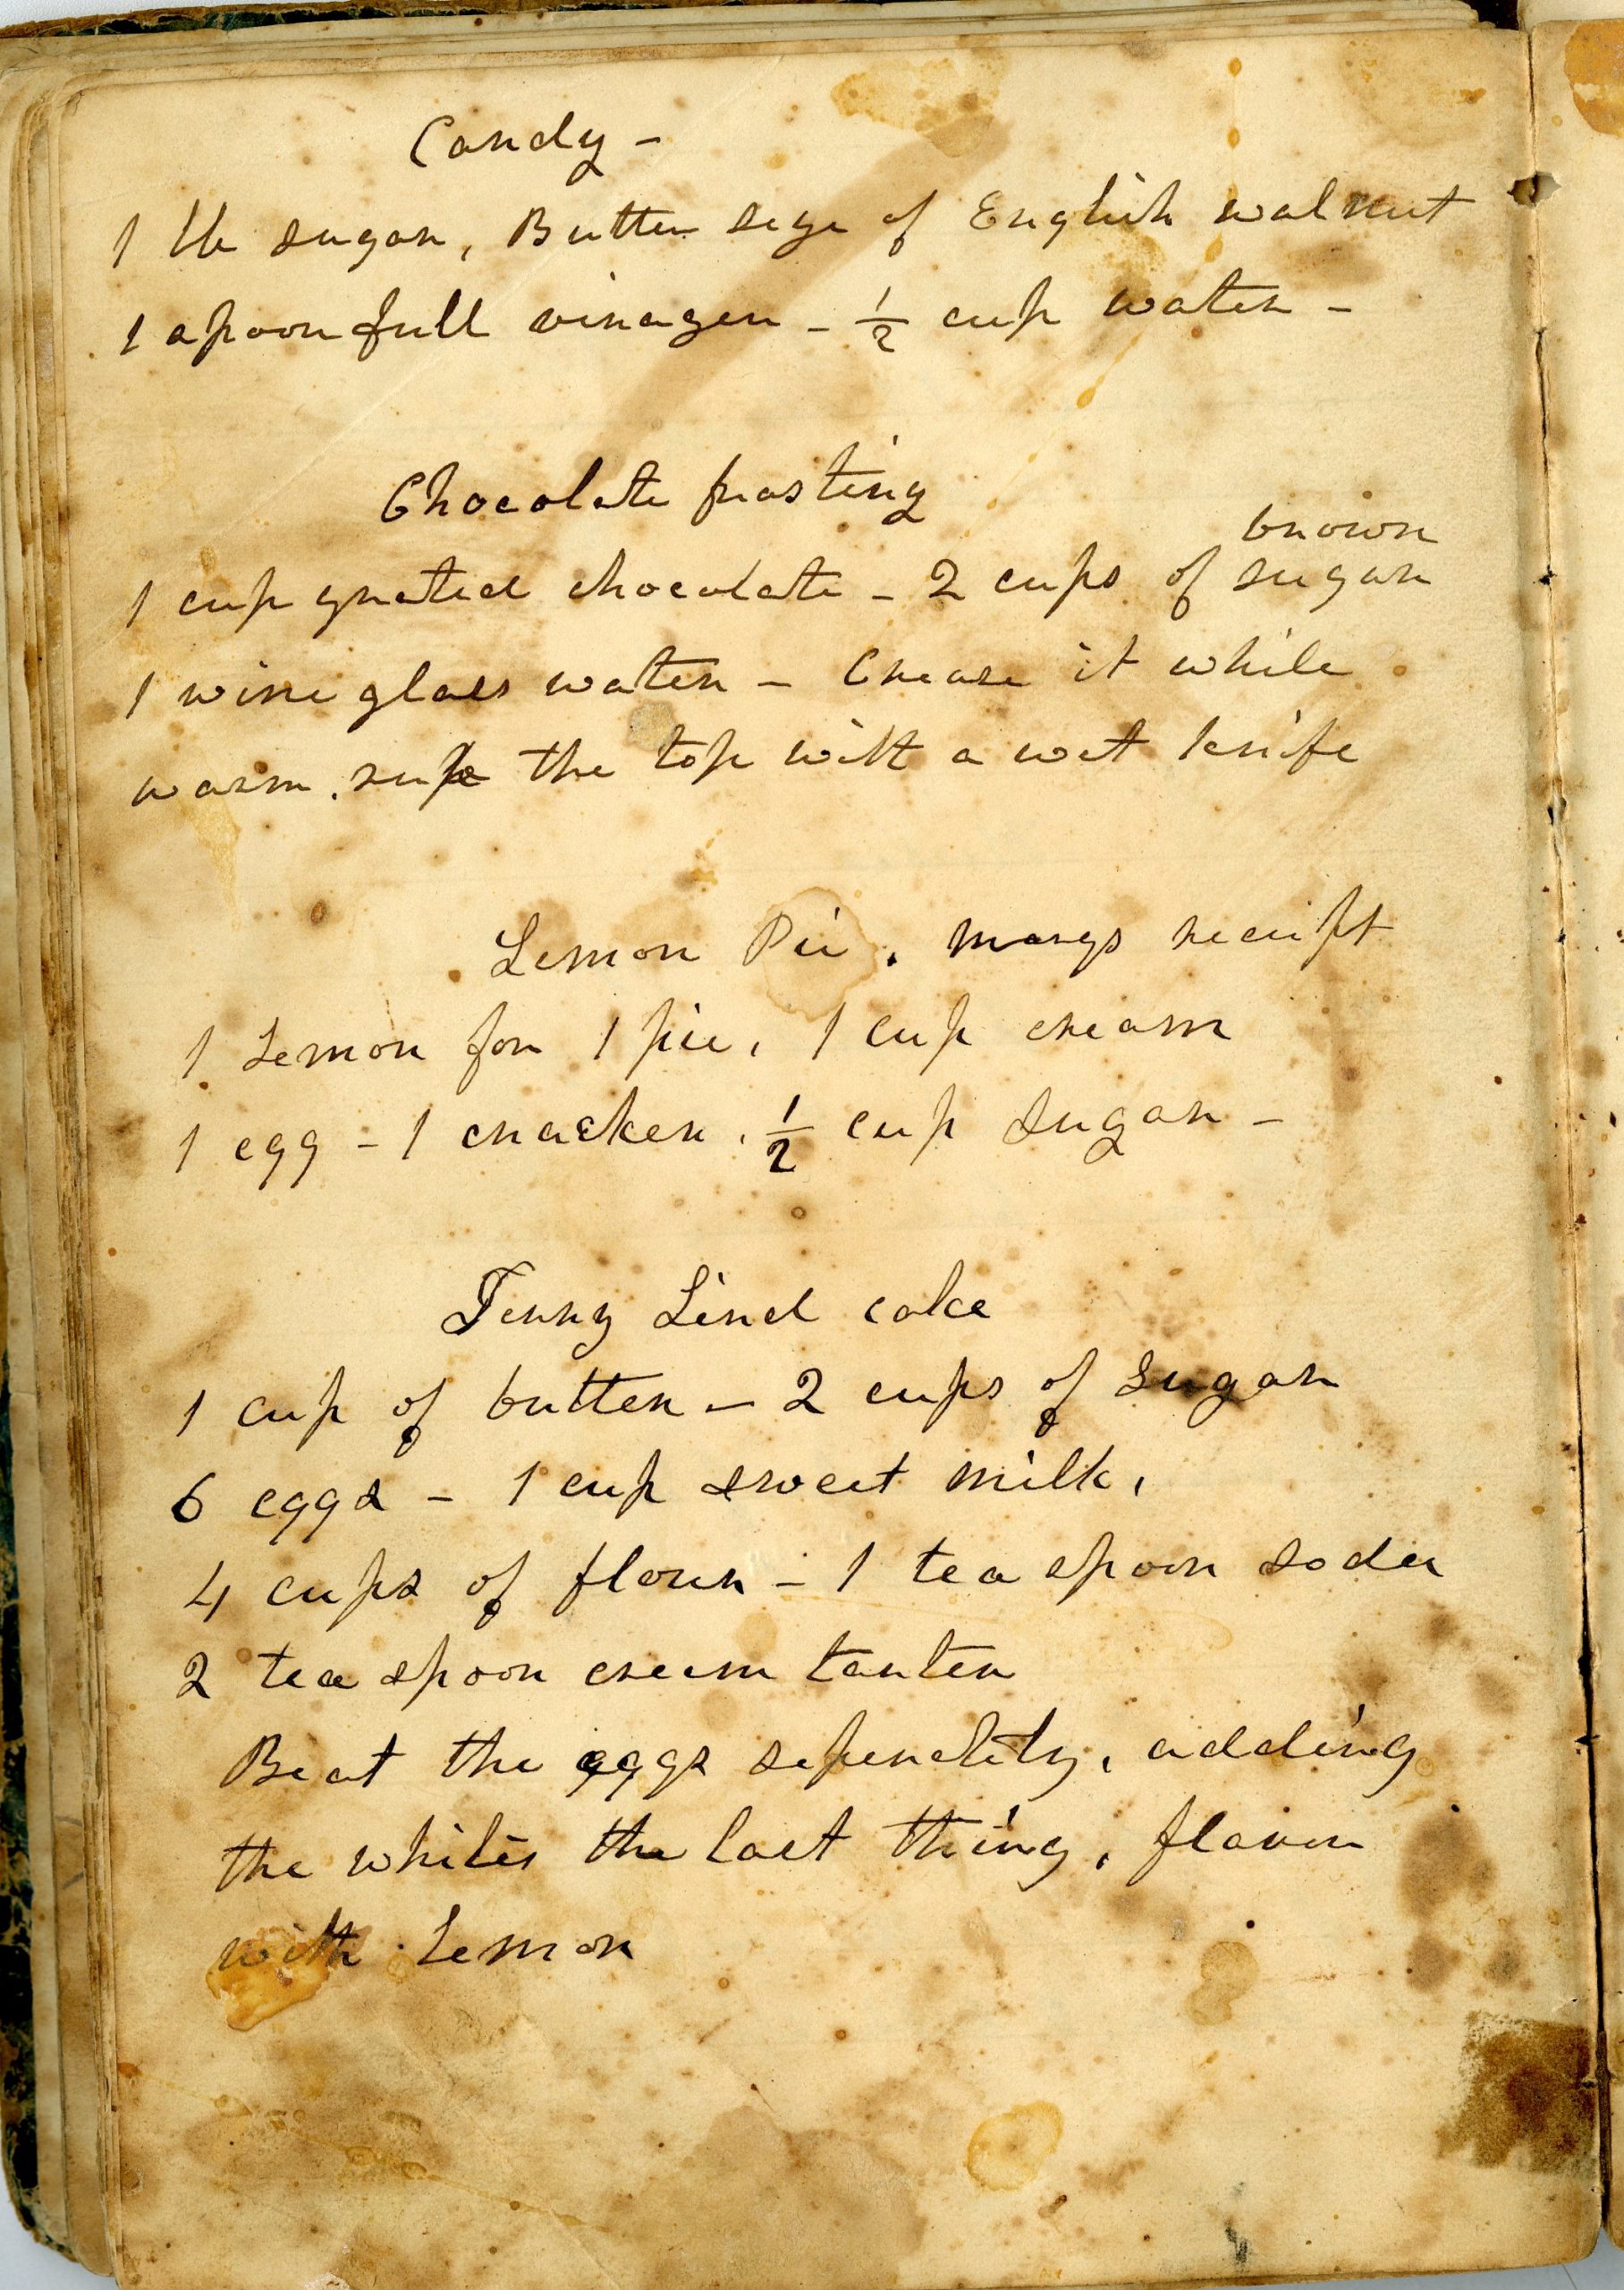 Candy -
1 lb sugar, Butter sege of English walnut
1 spoonfull vinager - ½ cup water -
Chocolate frosting
brown
1 cup grated chocolate - 2 cups of sugar
1 wine glass water - Crease it while
warm. the top witt a wet knife
Lemon Pie. marys receipt
1 Lemon for 1 pie, 1 cup cream
1 egg - 1 cracker. ½ cup sugar -
Jenny Lind cake
1 cup of butter - 2 cups of sugar
6 eggs - 1 cup sweet milk,
4 cups of flour - 1 tea spoon soda
2 tea spoon cream tarter
Beat the eggs seperately, adding
the whites the last thing, flavor
with Lemon